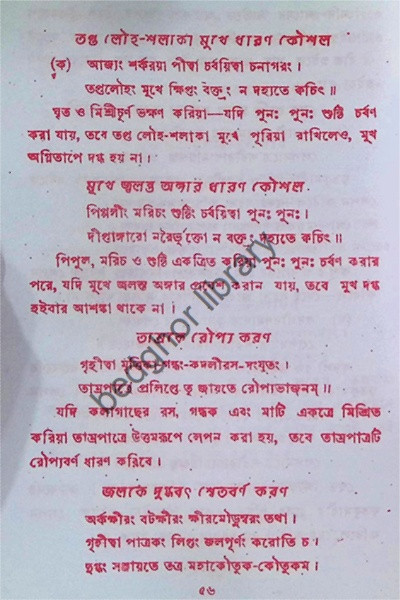 তপ্ত লৌহ-শলাকা মুখে ধারণ কৌশল
(ক) আজ্যং শর্করয়া পীত্বা চর্বয়িত্বা চনাগরং।
তপ্তলৌহং মুখে ক্ষিপ্তং বক্তুং ন দহ্যতে কচিৎ॥
ঘৃত ও মিশ্রীচূর্ণ ভক্ষণ করিয়া—যদি পুনঃ পুনঃ শুষ্টি চর্বণ
করা যায়, তবে তপ্ত লৌহ-শলাকা মুখে পূরিয়া রাখিলেও, মুখ
অগ্নিতাপে দগ্ধ হয় না।
মুখে জ্বলন্ত অঙ্গার ধারণ কৌশল
পিপ্পলীং মরিচং শুষ্টিং চর্বয়িত্বা পুনঃ পুনঃ।
দীপ্তাঙ্গারো নরৈর্ভুক্তো ন বক্ত্রং দহ্যতে কচিৎ॥
পিপুল, মরিচ ও শুষ্টি একত্রিত করিয়া পুনঃ পুনঃ চর্বণ করার
পরে, যদি মুখে জলন্ত অঙ্গার প্রবেশ করান যায়, তবে মুখ দগ্ধ
হইবার আশঙ্কা থাকে না।
তাম্রকে রৌপ্য করণ
গৃহীত্বা মৃত্তিকা গন্ধং-কদলীরস-সংযুতং।
তাম্রপাত্রে প্রলিপ্তে তু জায়তে রৌপ্যভাজনম্॥
যদি কলাগাছের রস, গন্ধক এবং মাটি একত্রে মিশ্রিত
করিয়া তাম্রপাত্রে উত্তমরূপে লেপন করা হয়, তবে তাম্রপাত্রটি
রৌপ্যবর্ণ ধারণ করিবে।
জলকে দুগ্ধবৎ শ্বেতবর্ণ করণ
অর্কক্ষীরং বটক্ষীরং ক্ষীরমৌডুম্বরং তথা।
গৃহীত্বা পাত্রকং লিপ্তং জলপূর্ণং করোতি চ।
দুগ্ধং সঞ্জায়তে তত্র মহাকৌতুক-কৌতুকম।
৫৬
bedabhor library